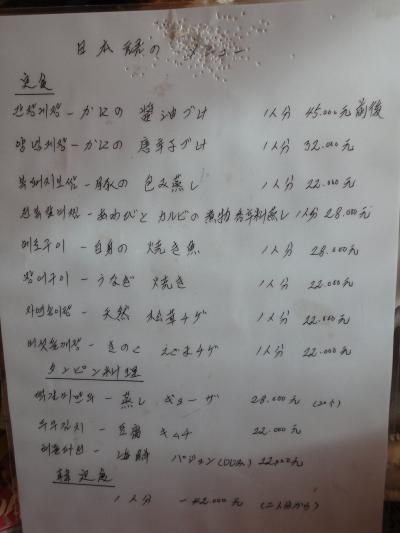 日本語の メニュー
定食
간장게장 - かにの 醬油づけ 1人分 45.000元 前後
양념게장 - かにの 唐辛子づけ 1人分 32.000元
包み蒸し 1人分 22.000元
あわびと カルビの 煮物 蒸し 1人分 28.000元
메로구이 - 白身の 焼き魚 1人分 28.000元
장어구이 - うなぎ 焼き 1人分 22.000元
자연송이장 - 天然 松茸チゲ 1人分 22.000元
버섯들깨장 - きのこ えごまチゲ 1人分 22.000元
タンピン料理
蒸し ギョーザ 28.000元
두부김치 - 豆腐 キムチ 22.000元
해물파전 - 海鮮 パジョン 22.000元
韓定食
1人分 - 42.000元 (二人分から)